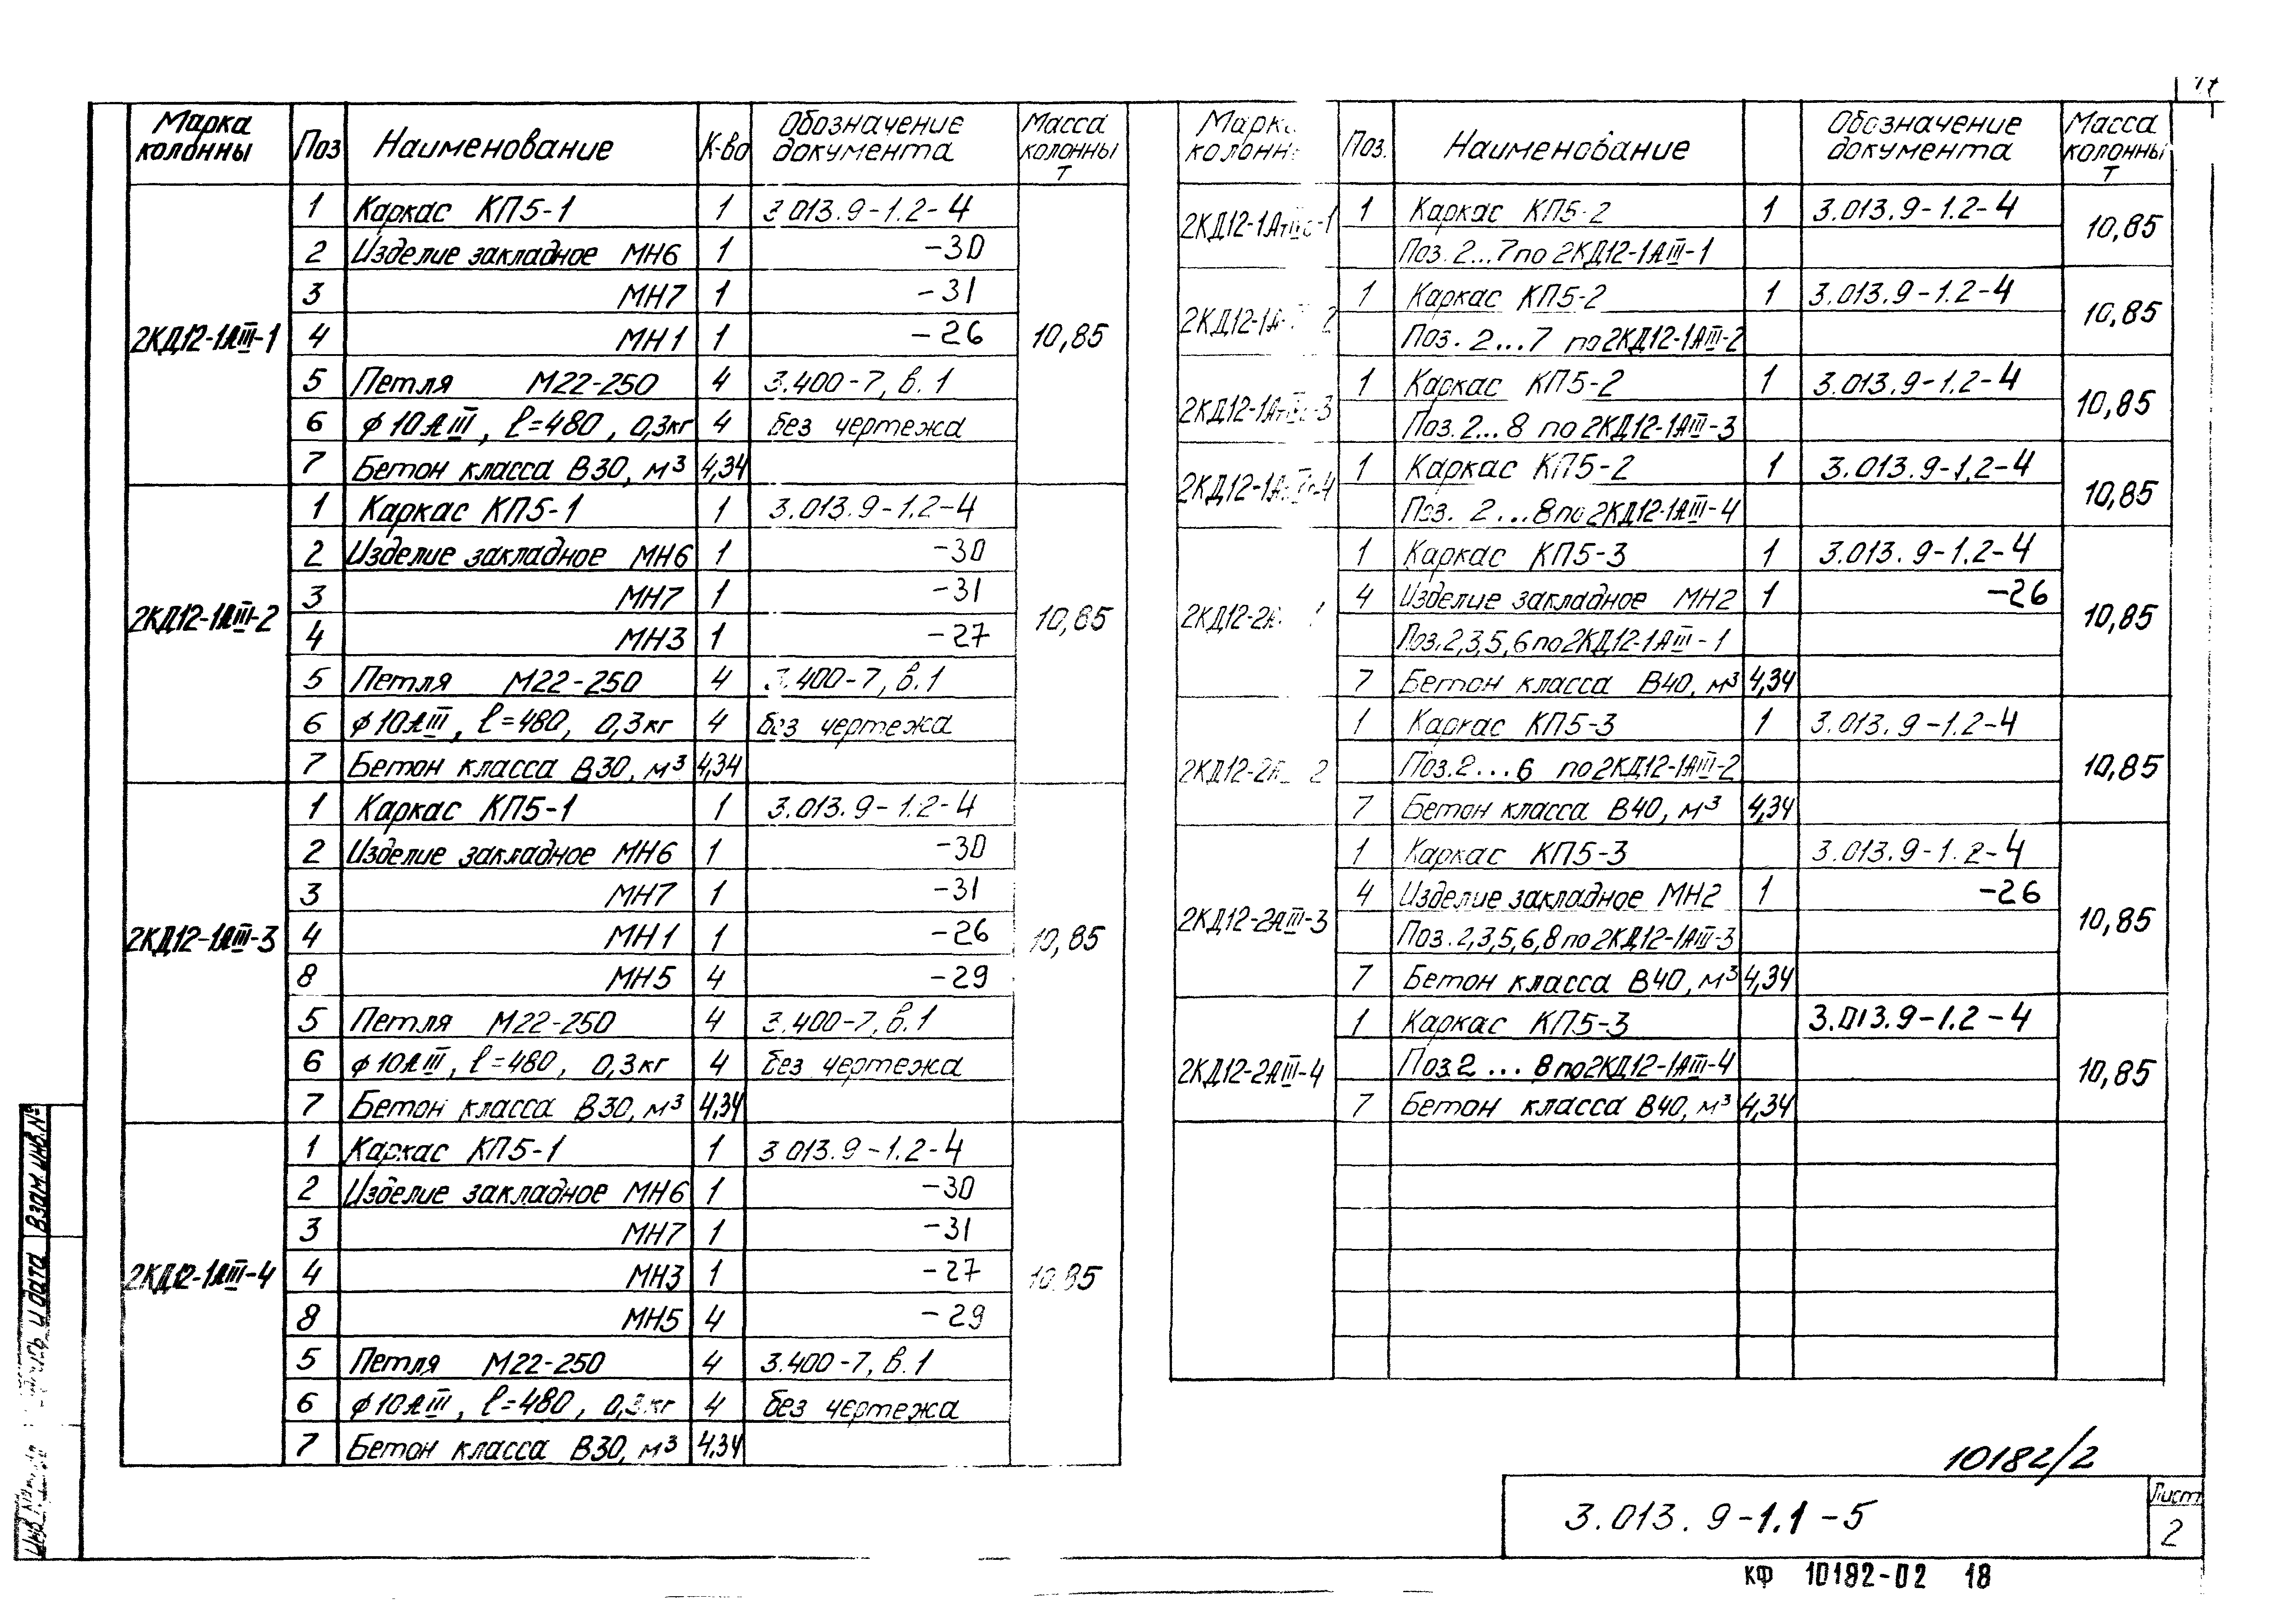 Марка колонны Поз Наименование К-во Обозначение документа Масса колонны т
2КД12-1АIII-1 10,85
1 Каркас КП5-1 1 3.013.9-1.2-4
2 Изделие закладное МН6 1 -30
3 МН7 1 -31
4 МН1 1 -26
5 Петля М22-250 4 3.400-7, в.1
6 ϕ10АIII, ℓ=480, 0,3кг 4 без чертежа
7 Бетон класса В30, м³ 4,34
2КД12-1АIII-2 10,85
1 Каркас КП5-1 1 3.013.9-1.2-4
2 Изделие закладное МН6 1 -30
3 МН7 1 -31
4 МН3 1 -27
5 Петля М22-250 4 3.400-7, в.1
6 ϕ10АIII, ℓ=480, 0,3кг 4 без чертежа
7 Бетон класса В30, м³ 4,34
2КД12-1АIII-3 10,85
1 Каркас КП5-1 1 3.013.9-1.2-4
2 Изделие закладное МН6 1 -30
3 МН7 1 -31
4 МН1 1 -26
8 МН5 4 -29
5 Петля М22-250 4 3.400-7, в.1
6 ϕ10АIII, ℓ=480, 0,3кг 4 без чертежа
7 Бетон класса В30, м³ 4,34
2КД12-1АIII-4 10,85
1 Каркас КП5-1 1 3.013.9-1.2-4
2 Изделие закладное МН6 1 -30
3 МН7 1 -31
4 МН3 1 -27
8 МН5 4 -29
5 Петля М22-250 4 3.400-7, в.1
6 ϕ10АIII, ℓ=480, 0,3кг 4 без чертежа
7 Бетон класса В30, м³ 4,34
Поз. Наименование Обозначение документа Масса колонны т
10,85
1 Каркас КП5-2 1 3.013.9-1.2-4
Поз. 2...7 по 2КД12-1АIII-1
10,85
1 Каркас КП5-2 1 3.013.9-1.2-4
Поз. 2...7 по 2КД12-1АIII-2
10,85
1 Каркас КП5-2 1 3.013.9-1.2-4
Поз. 2...8 по 2КД12-1АIII-3
10,85
1 Каркас КП5-2 1 3.013.9-1.2-4
Поз. 2...8 по 2КД12-1АIII-4
10,85
1 Каркас КП5-3 1 3.013.9-1.2-4
4 Изделие закладное МН2 1 -26
Поз. 2,3,5,6 по 2КД12-1АIII-1
7 Бетон класса В40, м³ 4,34
10,85
1 Каркас КП5-3 1 3.013.9-1.2-4
Поз. 2...6 по 2КД12-1АIII-2
7 Бетон класса В40, м³ 4,34
2КД12-2АIII-3 10,85
1 Каркас КП5-3 3.013.9-1.2-4
4 Изделие закладное МН2 1 -26
Поз. 2,3,5,6,8 по 2КД12-1АIII-3
7 Бетон класса В40, м³ 4,34
2КД12-2АIII-4 10,85
1 Каркас КП5-3 3.013.9-1.2-4
Поз. 2...8 по 2КД12-1АIII-4
7 Бетон класса В40, м³ 4,34
10182/2
3.013.9-1.1-5
Лист
2
КФ 10182-02 18
Взам. инв. №
и дата